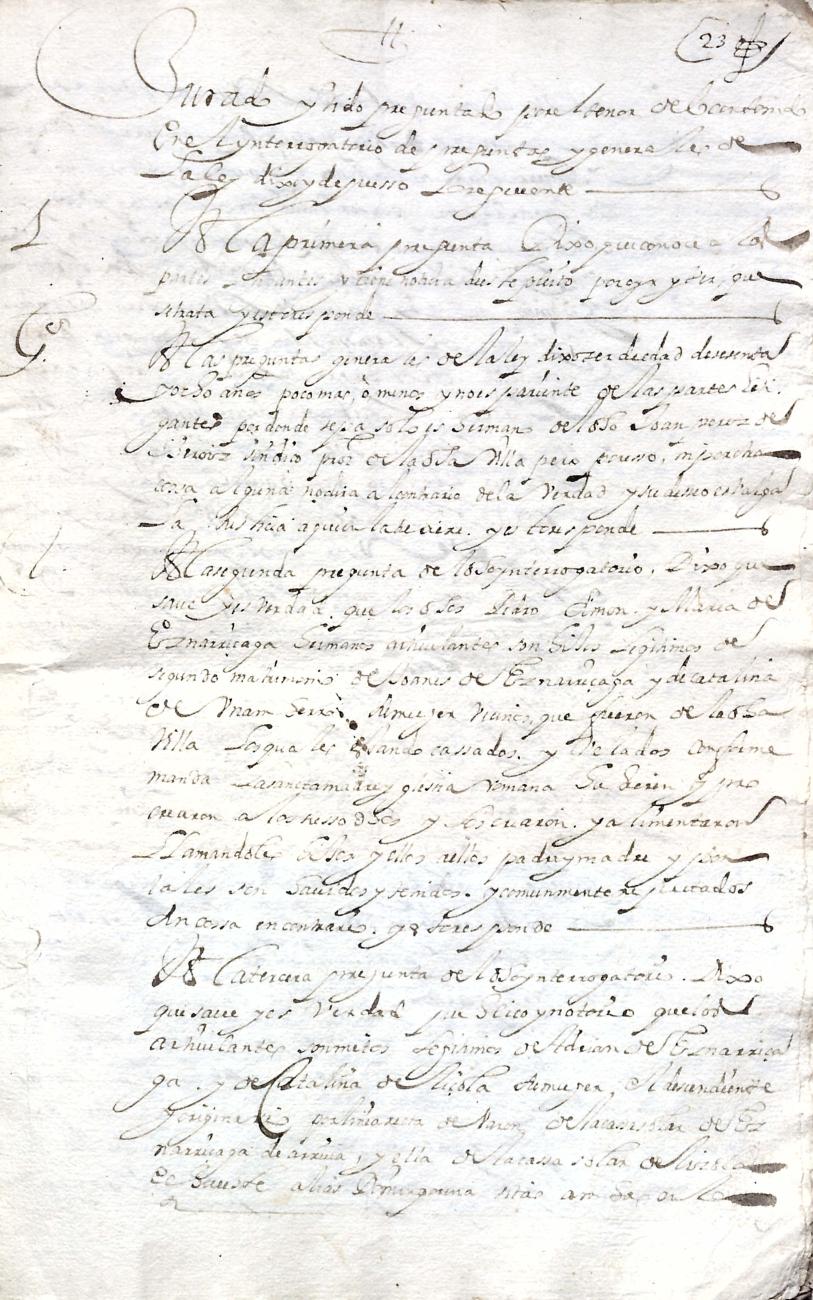 23
Jurado y sido preguntado por el tenor de
en el ynterrogatorio de preguntas y generales de
la ley dixo y depusso lo siguiente
1 A la primera pregunta Dixo que conoce a las
partes litigantes y tiene noticia deste pleito por que
se trata y esto responde
Ges A las preguntas generales de la ley dixo ser de edad de sesenta
y ocho años poco mas o menos y no es pariente de las partes liti
gantes por donde sepa solo es hermano del dho Joan perez de
sindico proor de la dha Villa pero por esso, ni por otra
cossa alguna no dira al contrario de la verdad y su desseo es valga
la Justicia a quien la tubiere. y esto responde
A la segunda pregunta de l dho ynterrogatorio. Dixo que
save y es verdad que los dhos Pedro Simon y Maria de
Eznarriçaga hermanos articulantes son hijos legitimos de
segundo matrimonio de Joanes de Eznarriçaga y de catalina
de su muger vecinos que fueron de la dha
Villa los quales estando cassados. y velados conforme
manda la sancta madre yglesia romana hubieron y pro
crearon a los susso dhos y los criaron. y alimentaron
llamandoles hijos y ellos a ellos padre y madre y por
tales son havidos y tenidos. y comunmente reputados
sin cossa en contrario. y esto responde
A la tercera pregunta de l dho ynterrogatorio. Dixo
que save y es verdad publico y notorio que los
articulantes son nietos legitimos de Adrian de Eznarriça
ga. y de Catalina de su muger, el descendiente
y originario por linia recta de Varon de la cassa solar de Ez
narriçaga de arriva, y ella de la cassa solar de
alias sitas